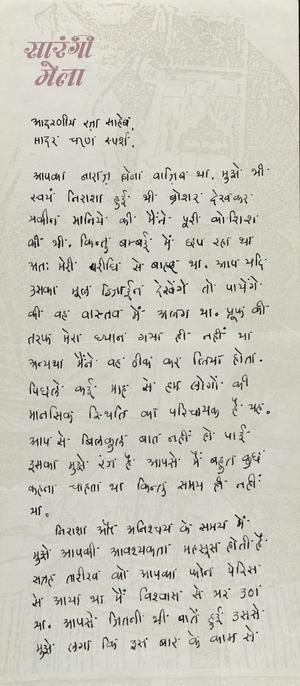 सारंगी
मेला
आदरणीय रज़ा साहेब,
सादर चरण स्पर्श.
आपका नाराज़ होना वाज़िब था. मुझे भी
स्वयं निराशा हुई थी ब्रोशर देखकर
यकीन मानिये की मैंने पूरी कोशिश
की थी. किन्तु बम्बई में छप रहा था
अतः मेरी परिधि से बाहर था. आप यदि
उसका मूल डिज़ाईन देखेंगे तो पायेंगे
की वह वास्तव में अलग था. प्रूफ की
तरफ मेरा ध्यान गया ही नहीं था
अन्यथा मैंने वह ठीक कर लिया होता.
पिछले कई माह से हम लोगों की
मानसिक स्थिति का परिचायक है यह.
आप से बिलकुल बात नहीं हो पाई
इसका मुझे रंज है. आपसे मैं बहुत कुछ
कहना चाहता था किन्तु समय ही नहीं
था.
निराशा और अनिश्चय के समय में
मुझे आपकी आवश्यकता महसूस होती है
सत्रह तारीख को आपका फोन पेरिस
से आया था मैं विश्वास से भर उठा
था. आपसे जितनी भी बातें हुई उससे
मुझे लगा कि इस बार के काम से